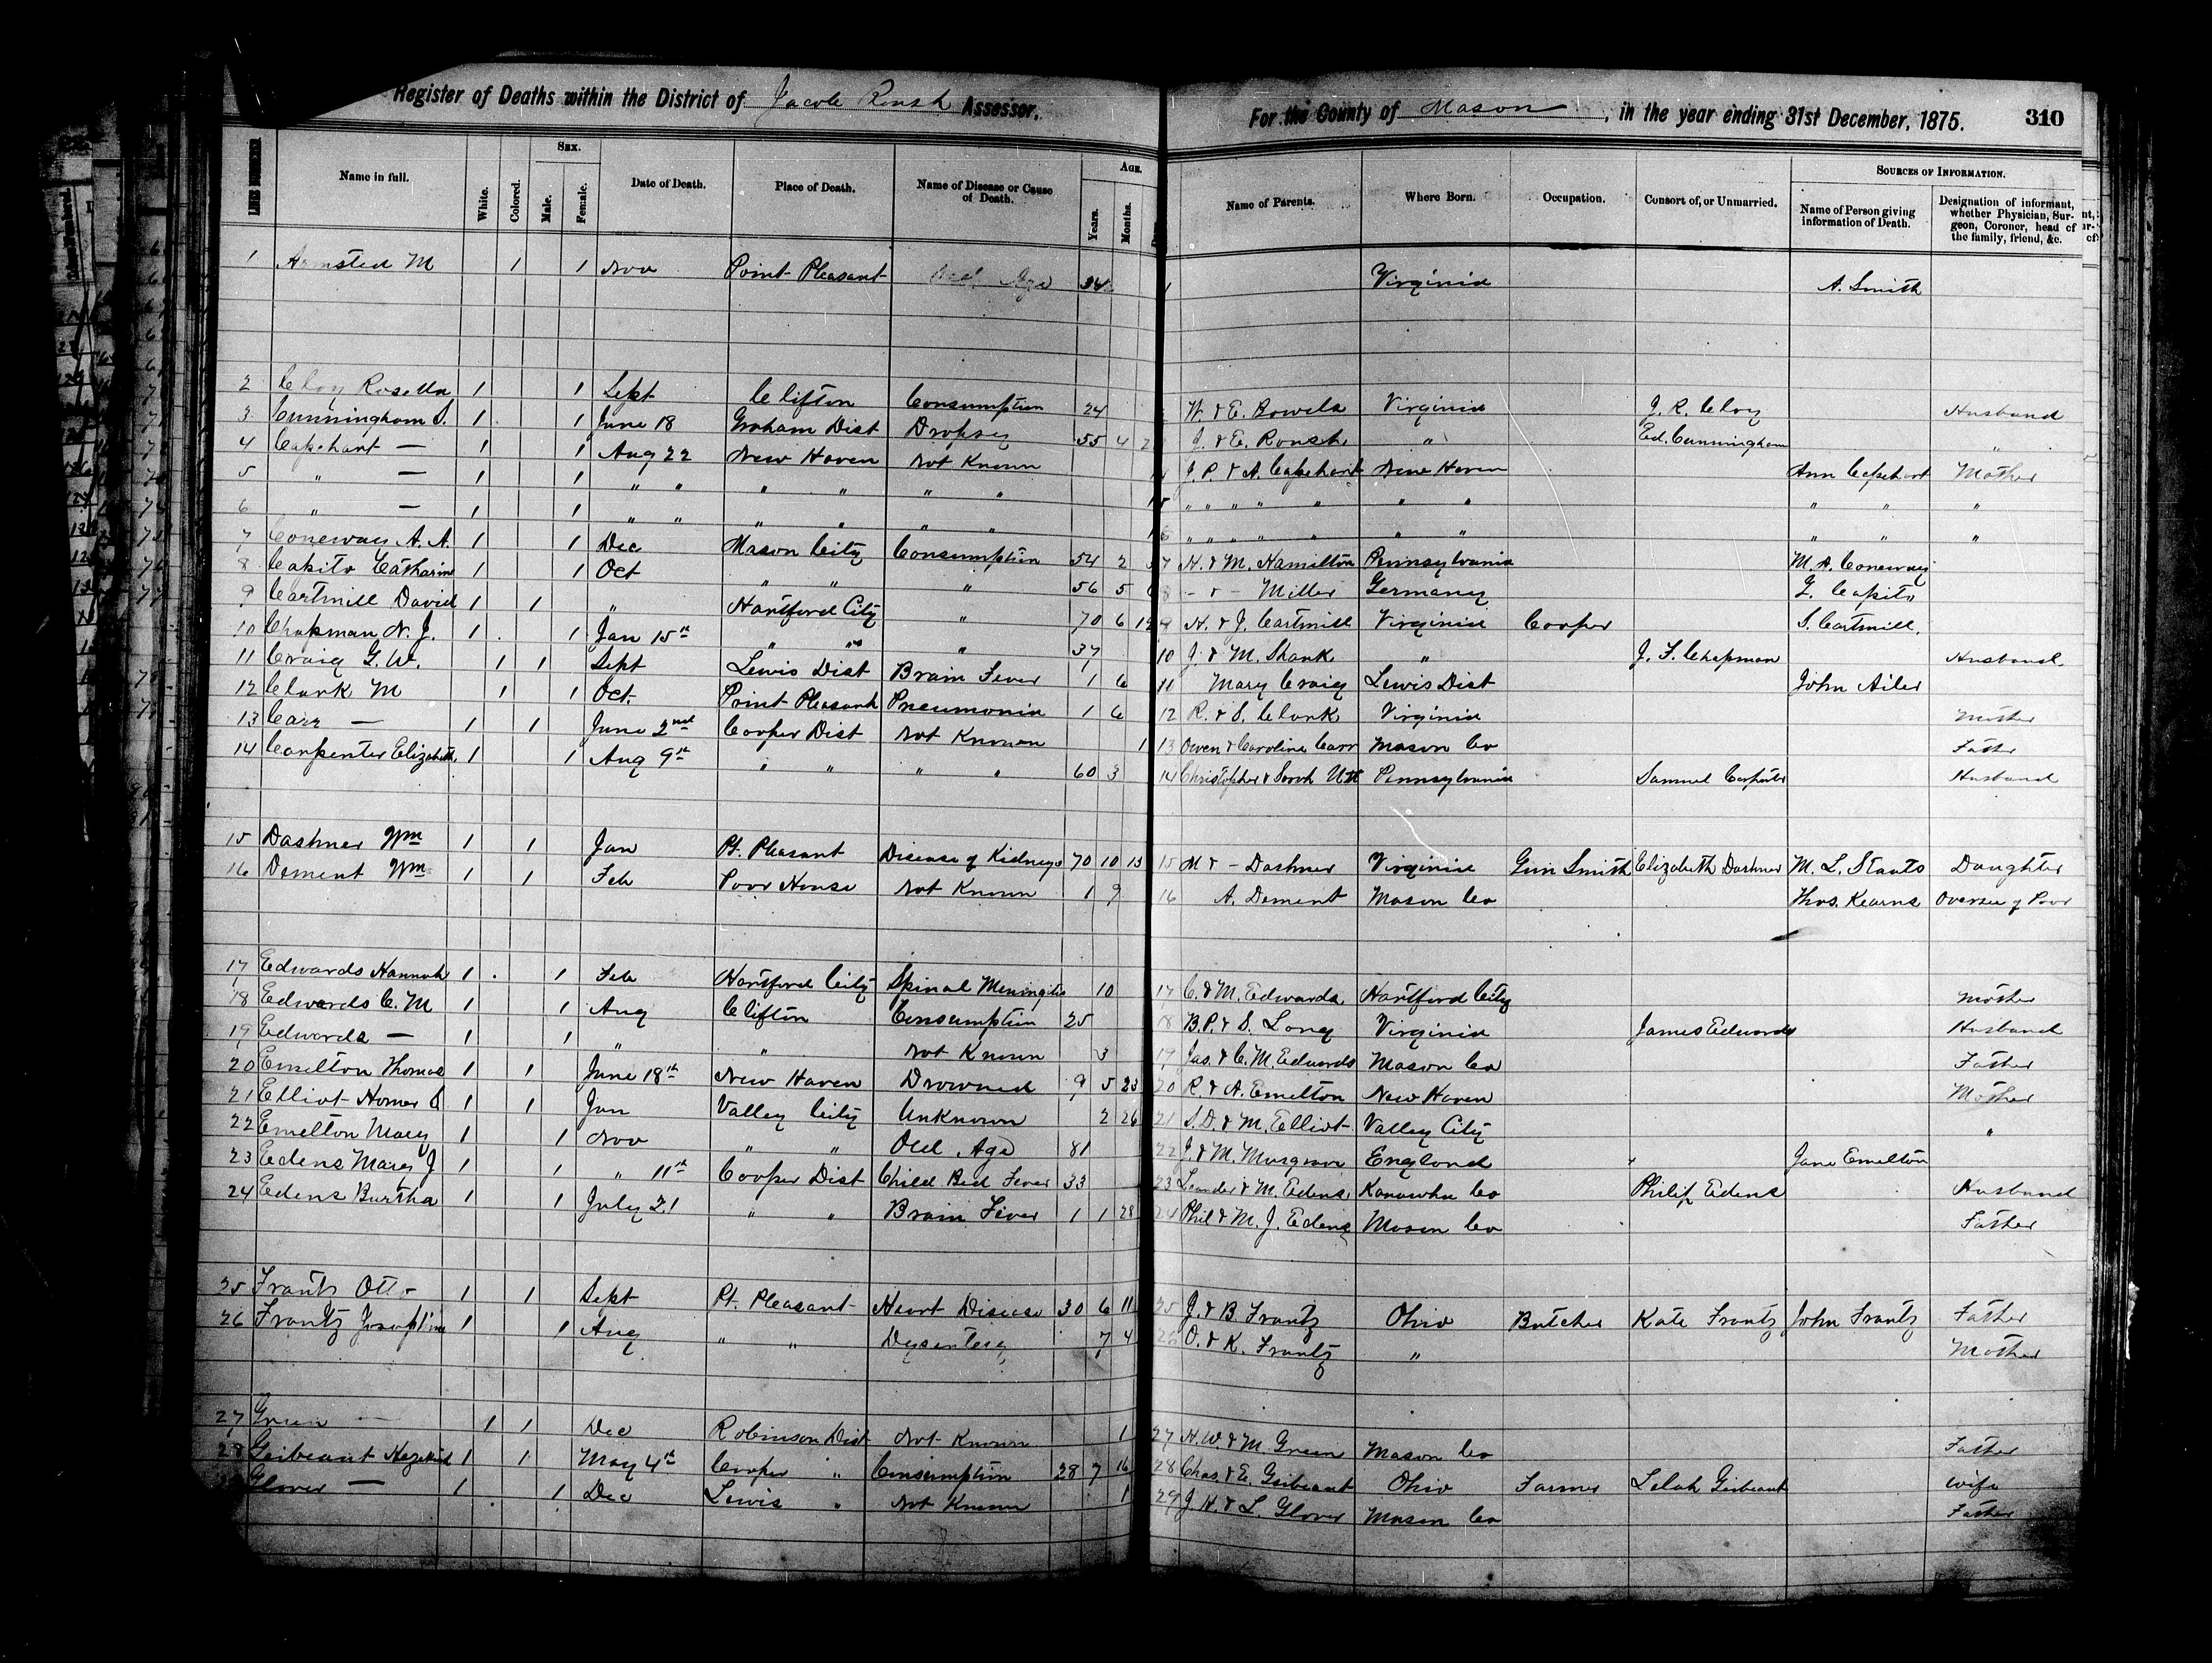 Register of Deaths within the District of Jacob Roush Assessor. For the County of Mason, in the year ending 31st December, 1875. 310
LINE NUMBER Name in full. White. Colored. SEX. Male. Female. Date of Death. Place of Death. Name of Disease or Cause of Death. AGE. Years. Months. Name of Parents. Where Born. Occupation. Consort of, or Unmarried. SOURCES OF INFORMATION. Name of Person giving information of Death. Designation of informant, whether Physician, Surgeon, Coroner, head of the family, friend, &c.
1 Armsted M 1 1 Nov Point Pleasant Old Age 1 Virginia A. Smith
2 Cloy Rosella 1 1 Sept Clifton Consumption 24 W. & E. Bowels Virginia J. R. Cloy Husband
3 Cunningham S. 1 1 June 18 Graham Dist Dropsey 55 4 2 J. & E. Roush " Ed. Cunningham "
4 Capehart — 1 1 Aug 22 New Haven Not Known 4 J. P. & A. Capehart New Haven Ann Capehart Mother
5 " — 1 1 " " " " " " 1 5 " " " " " " " " " "
6 " — 1 1 " " " " " " 1 6 " " " " " " " " " "
7 Coneway A. A. 1 1 Dec Mason City Consumption 54 2 7 H. & M. Hamilton Pennsylvania M. A. Coneway
8 Capito Catharine 1 1 Oct " " " 56 5 8 - & - Miller Germany G. Capito
9 Cartmill David 1 1 " Hartford City " 70 6 12 9 H. & J. Cartmill Virginia Cooper S. Cartmill.
10 Chapman N. J. 1 1 Jan 15th " " " 37 10 J. & M. Shank " J. F. Chapman Husband
11 Craig G. W. 1 1 Sept Lewis Dist Brain Fever 1 6 11 Mary Craig Lewis Dist John Ailer
12 Clark M 1 1 Oct. Point Pleasant Pneumonia 1 6 12 R. & S. Clark Virginia Mother
13 Carr — 1 1 June 2nd Cooper Dist Not Known 1 13 Owen & Caroline Carr Mason Co Father
14 Carpenter Elizabeth 1 1 Aug 9th " " " " 60 3 14 Christopher & Sarah Utt Pennsylvania Samuel Carpenter Husband
15 Dashner Wm 1 1 Jan Pt. Pleasant Disease of Kidneys 70 10 13 15 M & - Dashner Virginia Gun Smith Elizabeth Dashner M. L. Staats Daughter
16 Dement Wm 1 1 Feb Poor House Not Known 1 9 16 A. Dement Mason Co Thos. Kearns Oversee of Poor
17 Edwards Hannah 1 1 Feb Hartford City Spinal Meningitis 10 17 C. & M. Edwards Hartford City Mother
18 Edwards C. M 1 1 Aug Clifton Consumption 25 18 B. P. & S. Long Virginia James Edwards Husband
19 Edwards — 1 1 " " Not Known 3 19 Jas. & C. M. Edwards Mason Co Father
20 Emelton Thomas 1 1 June 18th New Haven Drowned 9 5 23 20 R. & A. Emelton New Haven Mother
21 Elliot Homer C 1 1 Jan Valley City Unknown 2 26 21 S. D. & M. Elliot Valley City "
22 Emelton Mary 1 1 Nov " " Old Age 81 22 J. & M. Musgrave England Jane Emelton
23 Edens Mary J 1 1 " 11th Cooper Dist Child Bed Fever 33 23 Leander & M. Edens Kanawha Co Philip Edens Husband
24 Edens Burtha 1 1 July 21 " " Brain Fever 1 1 28 24 Phil & M. J. Edens Mason Co Father
25 Frantz Otto 1 1 Sept Pt. Pleasant Heart Disease 30 6 11 25 J. & B. Frantz Ohio Butcher Kate Frantz John Frantz Father
26 Frantz Josephine 1 1 Aug " " Dysentery 7 4 26 O. & K. Frantz " Mother
27 Green — 1 1 Dec Robinson Dist Not Known 1 27 H. W. & M. Green Mason Co Father
28 Geibeaut Hezekiah 1 1 May 4th Cooper " Consumption 28 7 16 28 Chas. & E. Geibeaut Ohio Farmer Lelah Geibeaut Wife
29 Glover — 1 1 Dec Lewis " Not Known 1 29 J. H. & L. Glover Mason Co Father